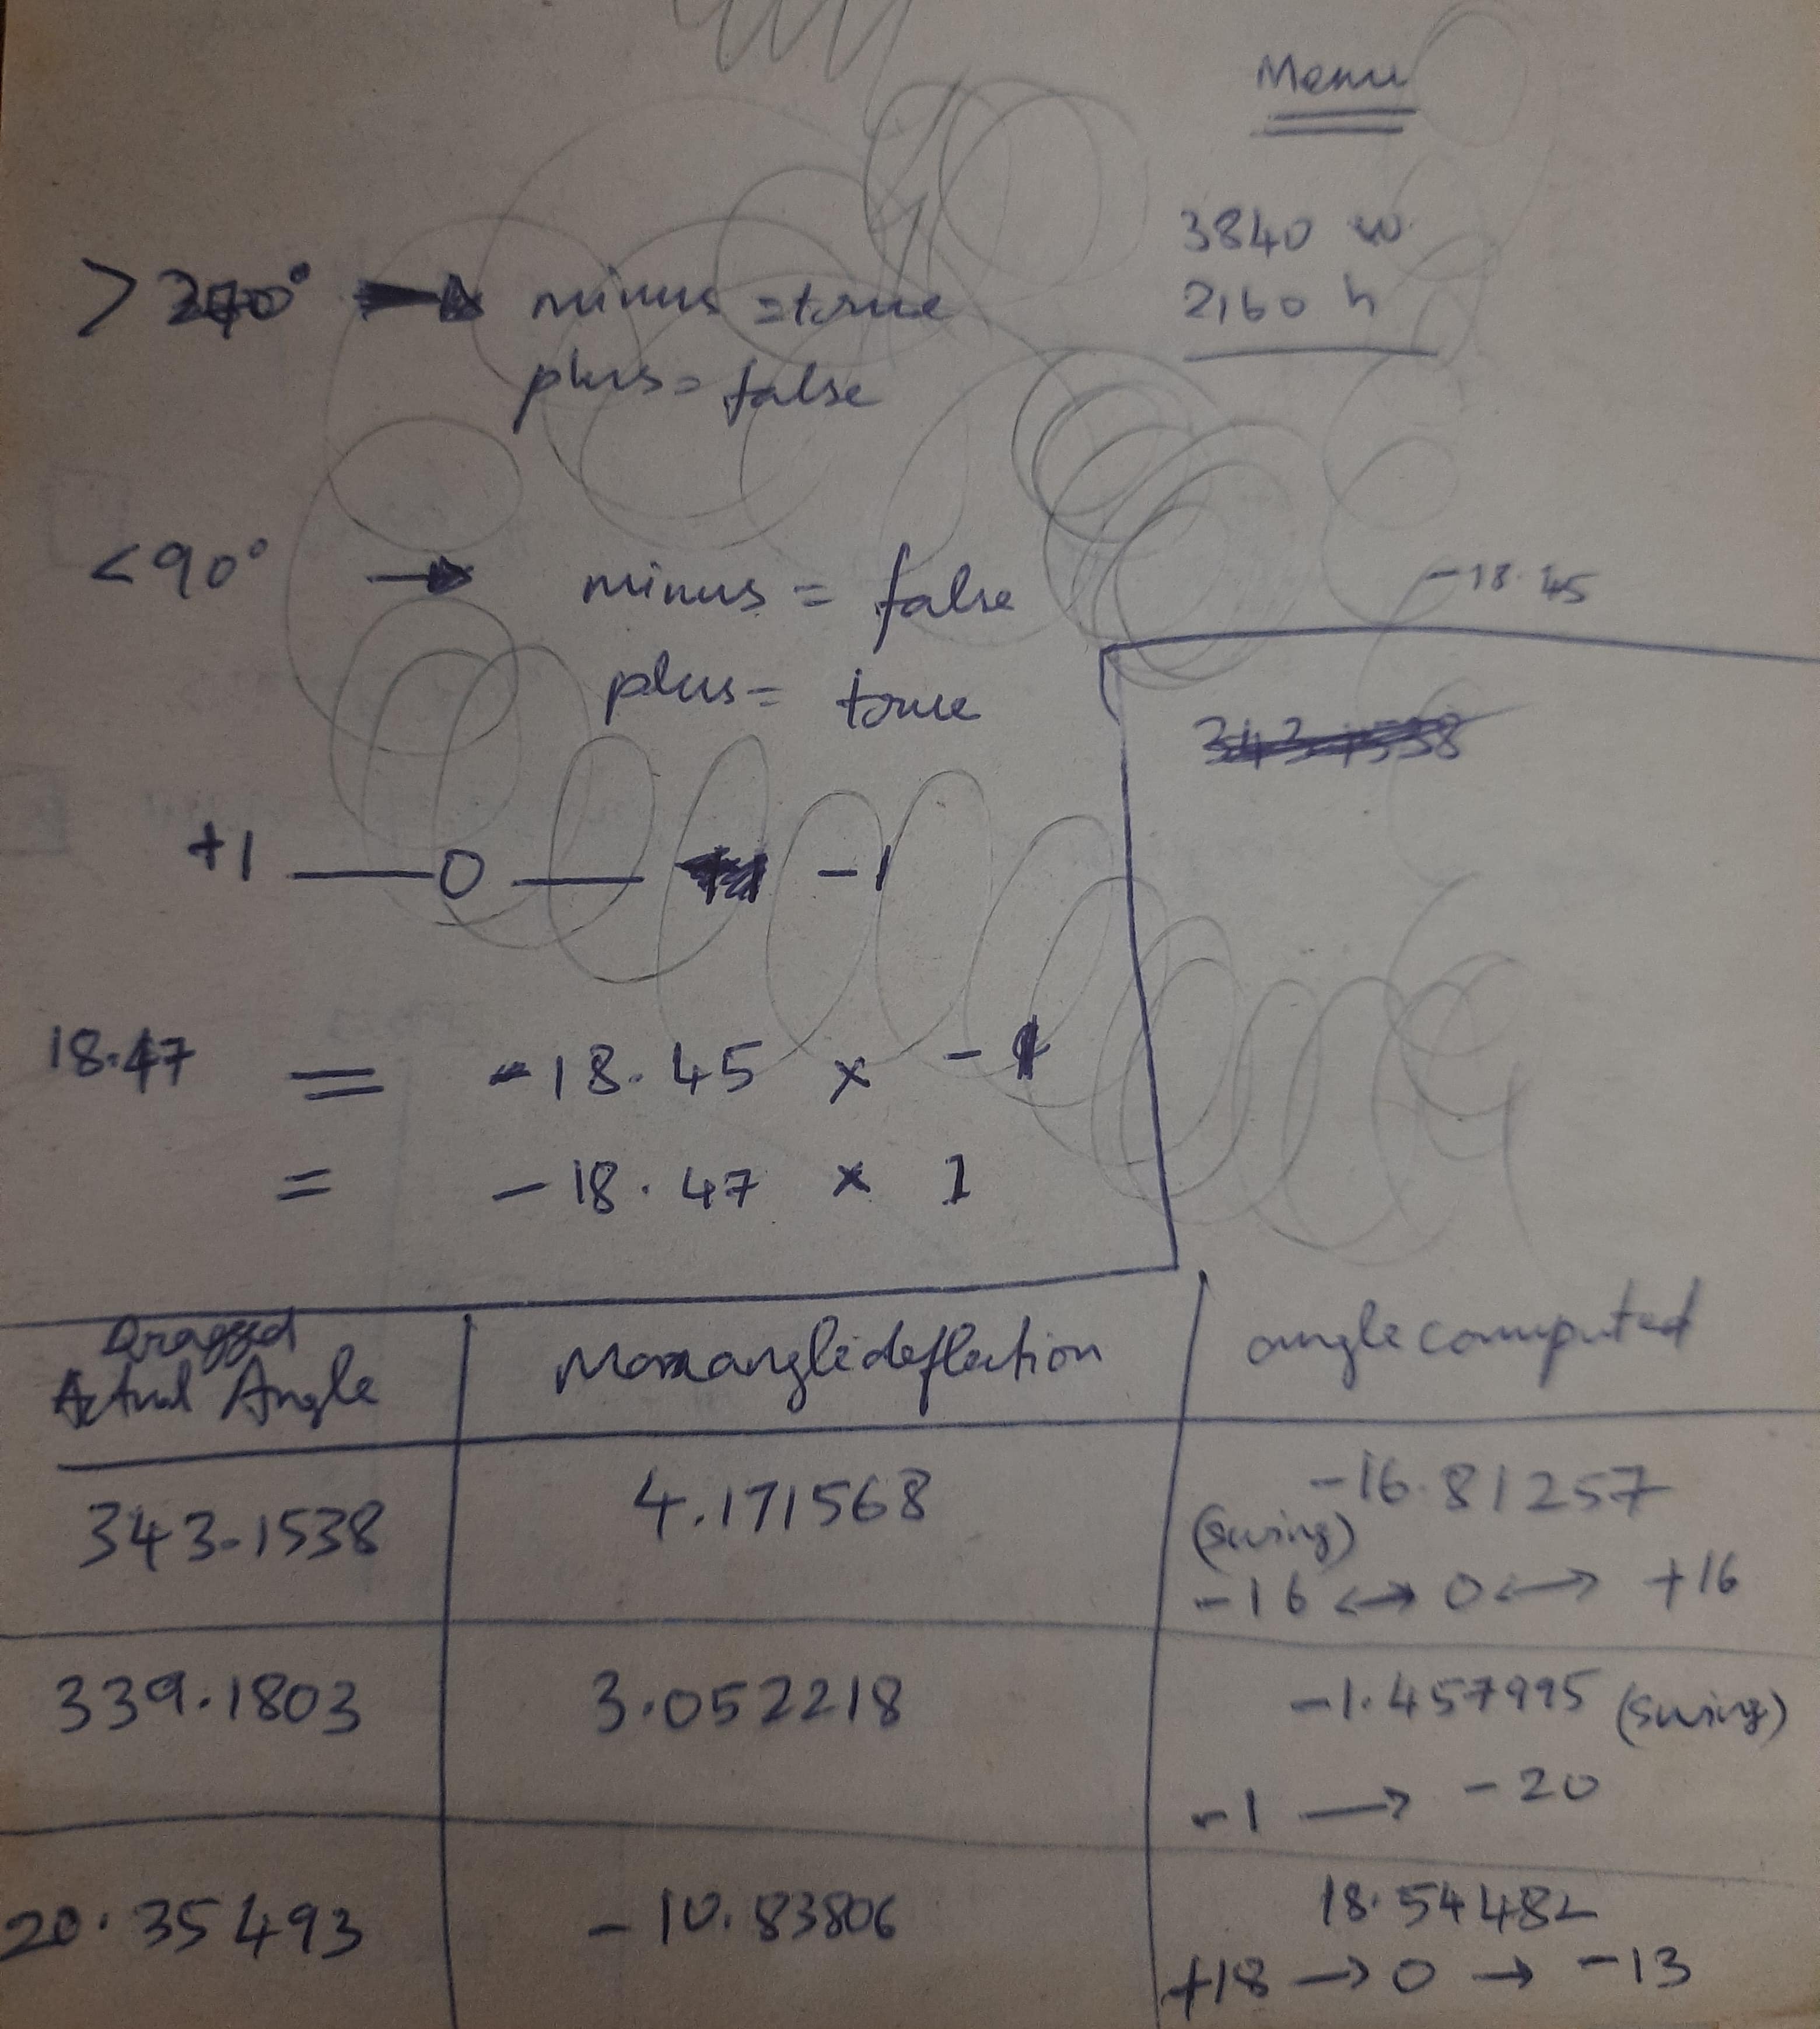 Menu
3840 w
2160 h
> 270° → minus = true
plus = false
<90° → minus = false
plus = true
-18.45
+1 — 0 — -1
18.47 = -18.45 × -1
= -18.47 × 1
Dragged
Actual Angle
Maxangledeflection
angle computed
343.1538
4.171568
-16.81257
(swing)
-16 ↔ 0 ↔ +16
339.1803
3.052218
-1.457995 (swing)
-1 → -20
20.35493
-10.83806
18.54482
+18 → 0 → -13